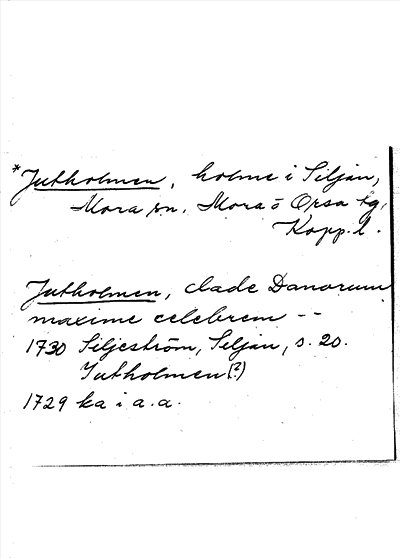 *Jutholmen, holme i Siljan,
Mora sn, Mora o Orsa tg,
Kopp. l.
Jutholmen, clade Danorum
maxime celebrem --
1730 Siljeström, Siljan, s. 20.
Jutholmen(?)
1729 ka i a.a.